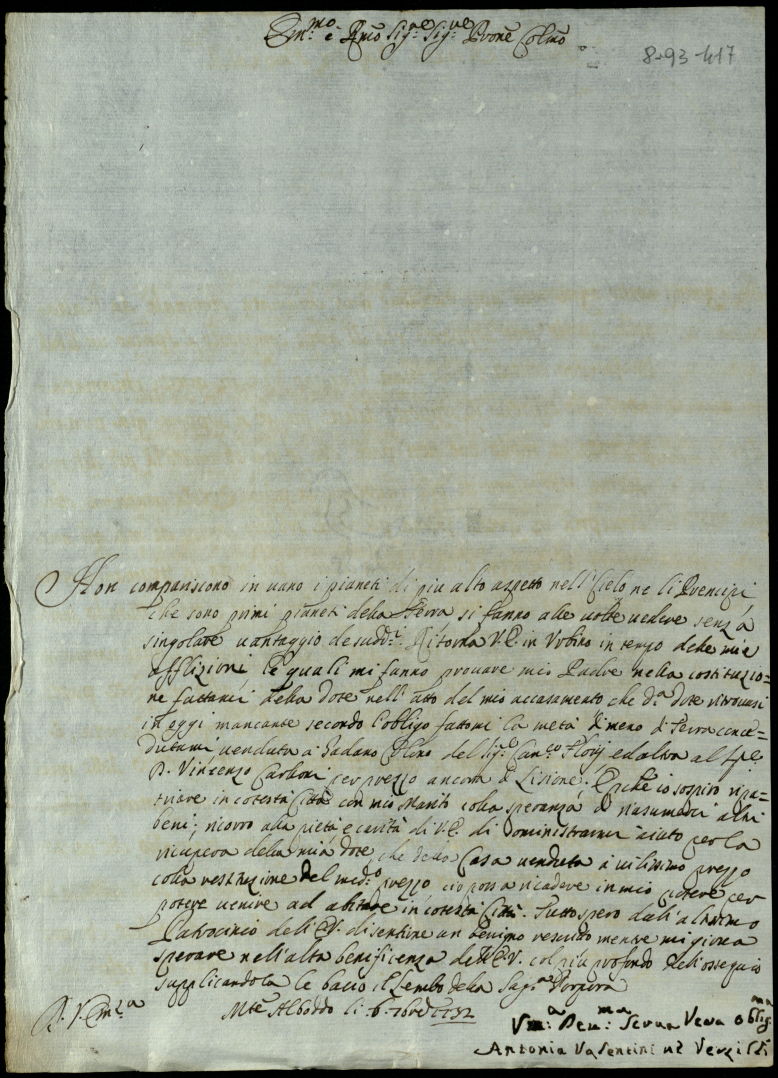 Em.mo e Rmo Sig.re Sig.re Prone Colmo
8-93-417
Non compariscono in uano i pianeti di piu alto aspetto nell Cielo ne li Prencipi
che sono primi pianeti della Terra si fanno alle uolte uedere senza
singolare uantaggio de sudd.i Ritorna V.E. in Vrbino in tempo delle mie
afflizioni le quali mi fanno prouare mio Padre nella costituzio=
ne fattami della Dote nell'atto del mio accasamento che d.a dote ritrouasi
in oggi mancante secondo l'obligo fattomi la metà di meno di Terra
uenduta à del Sig.re Can.co ed altra al
D. Vincenzo Carboni per prezzo ancora di Lesione. E perche io sospiro ripa=
triare in cotesta Città con mio Marito colla speranza di riasumerci altri
beni, ricorro alla pietà e carità di V.E. di somministrarmi aiuto per la
ricupera della mia dote, che detta Casa uenduta à uilissimo prezzo
colla restituzione del med.o prezzo cio possa ricadere in mio potere per
potere uenire ad abitare in cotesta Città. Tutto spero dall'altissimo
Patrocinio dell'E.V. di sentirne un benigno rescritto mentre mi gioua
sperare nell'alta beneficenza dell'E.V. col piu profondo dell'ossequio
supplicandola le bacio il lembo della Sag.a Porpora
D. V. Em.za
Mte Alboddo li 6 1732
V.ma Deu.ma Serua Vera oblig.ma
Antonia Valentini ne Verzildi